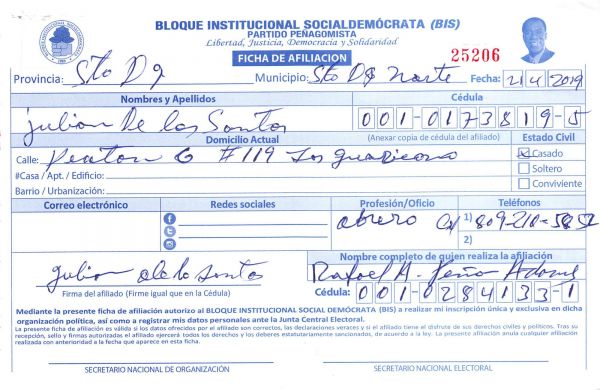 BLOQUE INSTITUCIONAL SOCIALDEMÓCRATA (BIS)
PARTIDO PEÑAGOMISTA
Libertad, Justicia, Democracia y Solidaridad
FICHA DE AFILIACION
25206
Provincia: Sto Dgo Municipio: Sto Dgo Norte Fecha: 21 4 2019
Nombres y Apellidos Cédula
Julian De los Santos 001-0173819-5
Domicilio Actual (Anexar copia de cédula del afiliado) Estado Civil
Calle: 6 #119 Los Guaricanos Casado
#Casa / Apt. / Edificio: Soltero
Barrio / Urbanización: Conviviente
Correo electrónico Redes sociales Profesión/Oficio Teléfonos
obrero 1) 809-210-5852
2)
Nombre completo de quien realiza la afiliación
Julian de los Santos Rafael A. Peña
Firma del afiliado (Firme igual que en la Cédula) Cédula: 001-0284133-1
Mediante la presente ficha de afiliación autorizo al BLOQUE INSTITUCIONAL SOCIAL DEMÓCRATA (BIS) a realizar mi inscripción única y exclusiva en dicha
organización política, así como a registrar mis datos personales ante la Junta Central Electoral.
La presente ficha de afiliación es válida si los datos ofrecidos por el afiliado son correctos, las declaraciones veraces y si el afiliado tiene el disfrute de sus derechos civiles y políticos. Tras su
recepción, sello y firmas autorizadas el afiliado ejercen todos los derechos y los deberes estatutariamente sancionados, de acuerdo a la ley. La presente afiliación anula cualquier afiliación
realizada con anterioridad a la fecha que aparece en esta ficha.
SECRETARIO NACIONAL DE ORGANIZACIÓN SECRETARIO NACIONAL ELECTORAL